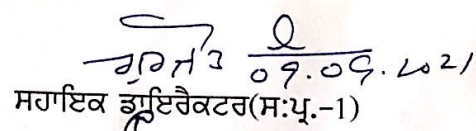 ਗੁਰਜੀਤ
09.09.2021
ਸਹਾਇਕ ਡਾਇਰੈਕਟਰ(ਸ:ਪ੍ਰ.-1)